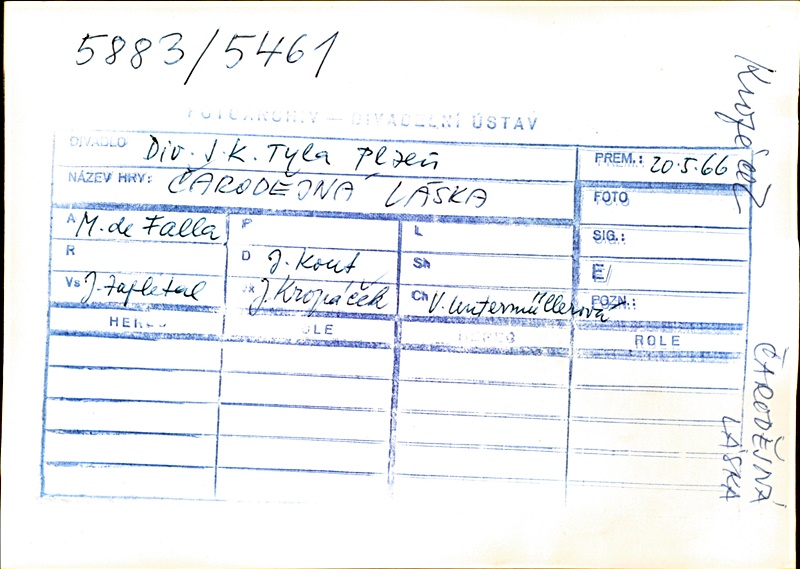 5883/5461
FOTOARCHIV — DIVADELNÍ ÚSTAV
DIVADLO Div. J. K. Tyla Plzeň
PREM.: 20.5.66
NÁZEV HRY: ČARODEJNÁ LÁSKA
FOTO
A M. de Falla
P
L
SIG.:
R
D J. Kout
Sh
E/
Vs J. Zapletal
Vk J. Kropáček
Ch V. Untermüllerová
POZN.:
HEREC
ROLE
HEREC
ROLE
ČARODĚJNÁ
LÁSKA